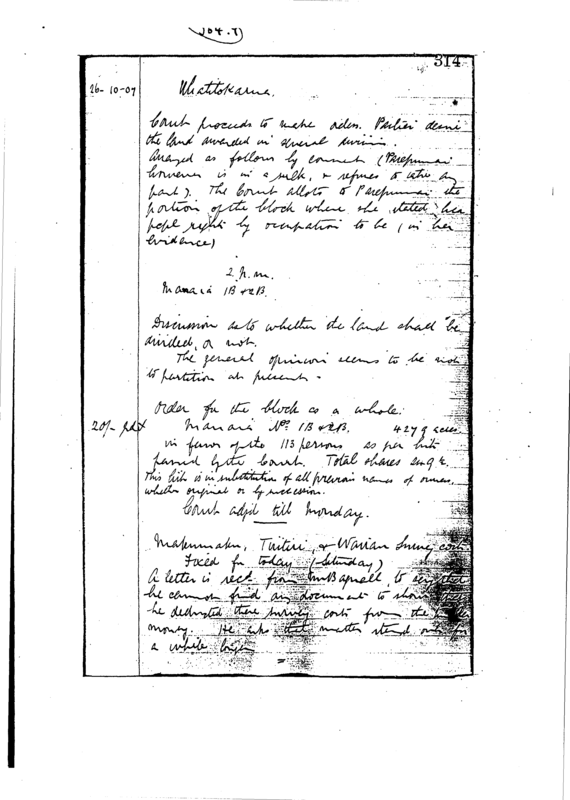 314
26-10-07
Court proceeds to make orders. Parties desire
the land awarded in several divisions.
Arranged as follows by consent (Parepumai
however is in a sulk, & refuses to
part). The Court allots to Parepumai the
portion of the block where she stated her
right by occupation to be (in her
evidence)
2 p.m.
Manaia 1B & 2B.
Discussion as to whether the land shall be
divided, or not.
The general opinion seems to be not
to partition at present.
Order for the block as a whole:
20/- pd
Manaia No. 1B & 2B. 4279 acres
in favor of the 113 persons as per list
passed by the Court. Total shares
This list is in substitution of all previous names of owners,
whether original or by succession.
Court adjd till Monday.
Survey costs
Fixed for today (Saturday)
A letter is recd from Bagnall, to
he cannot find any document to show that
he deducted these survey costs from the
money. He asks that matter stand over for
a while longer